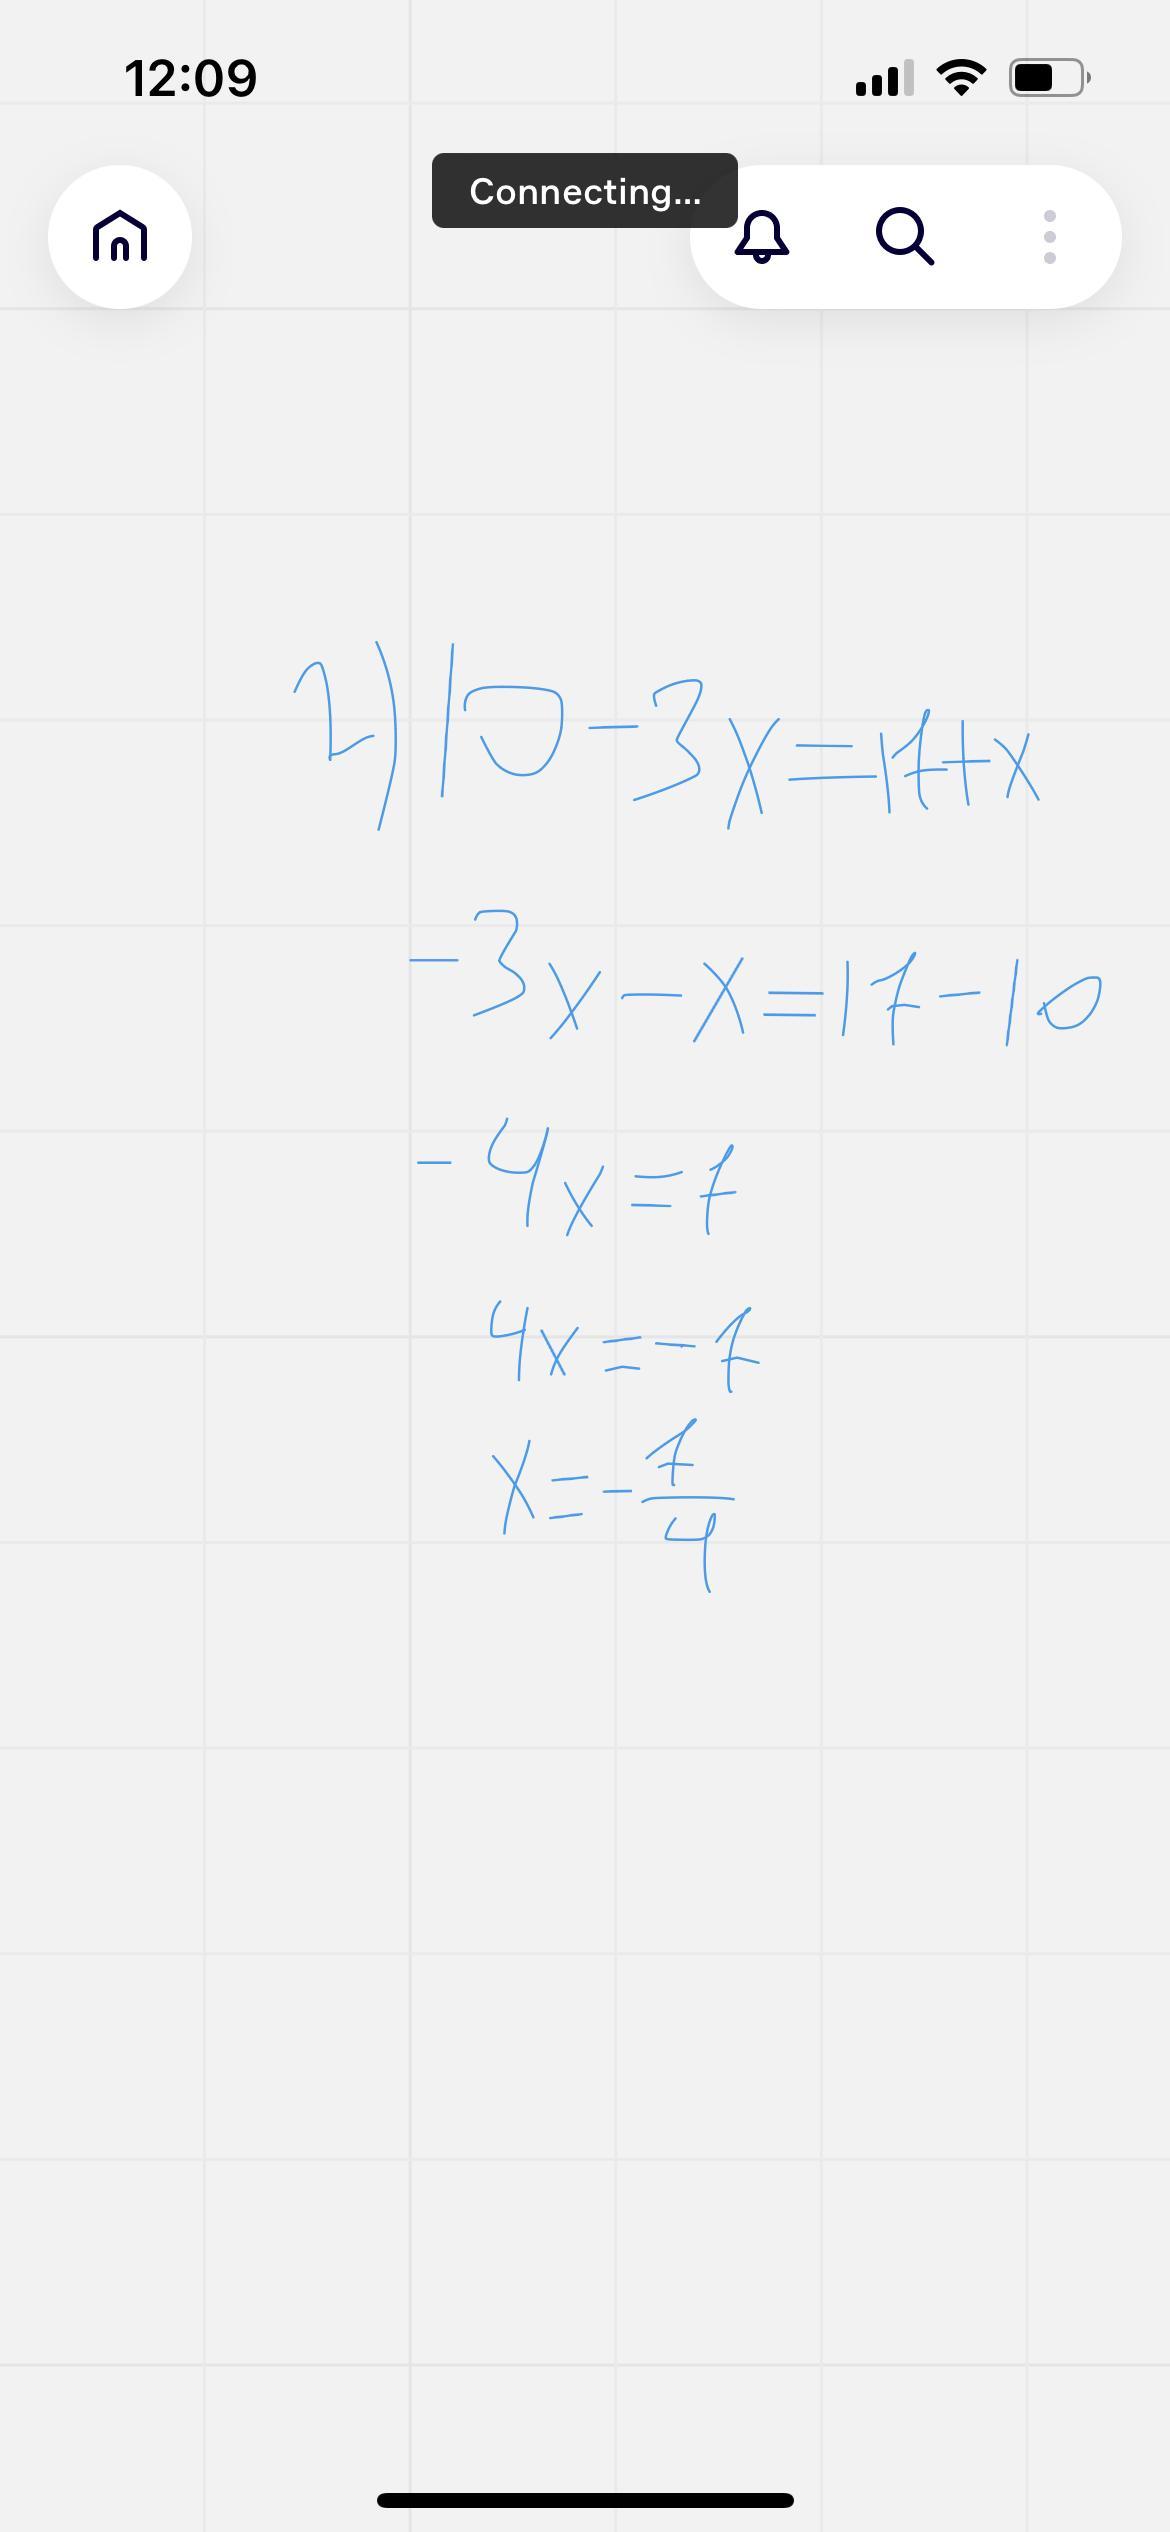 12:09
Connecting...
2) 10-3x=17+x
-3x-x=17-10
-4x=7
4x=-7
x=-7/4